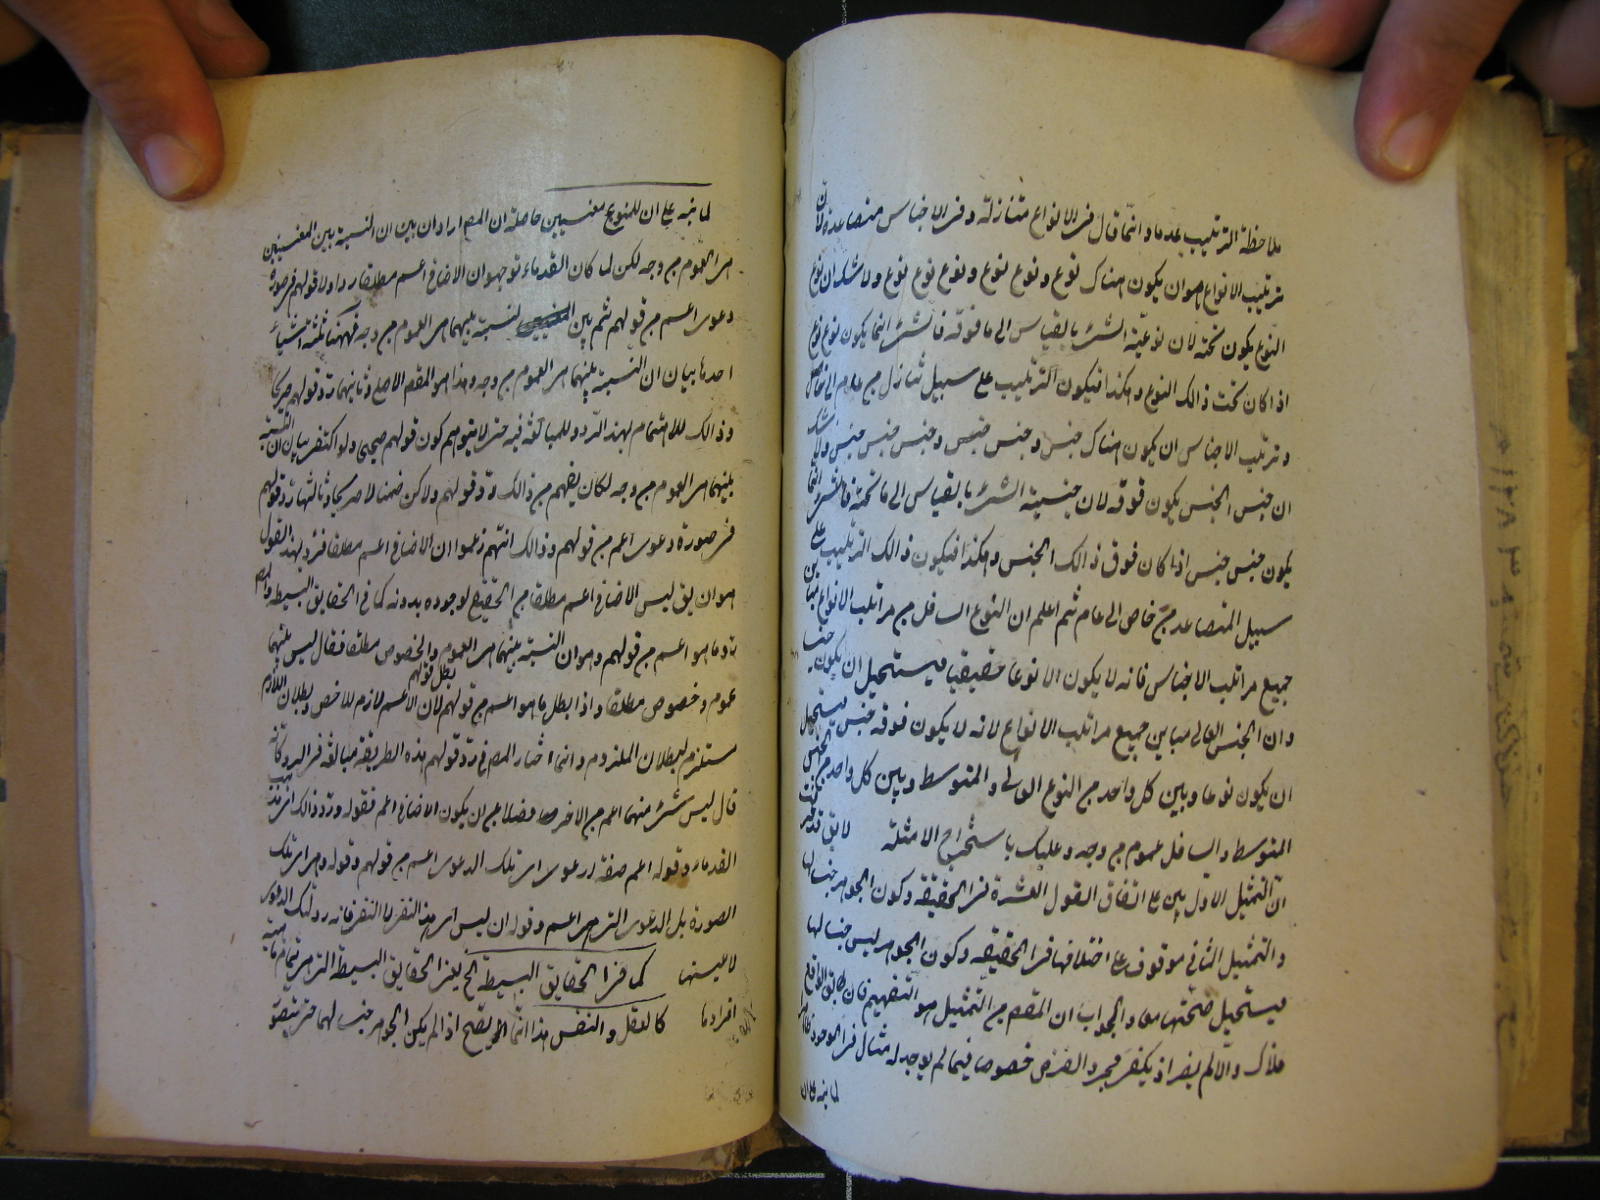 ملاحظة الترتيب عدما وانما قال فى الانواع متنازلة وفى الاجناس متصاعدة لان
ترتيب الانواع هو ان يكون هناك نوع ونوع لنوع ونوع نوع نوع ولا شك ان نوع
النوع يكون تحته لان نوعية الشئ بالقياس الى ما فوقه فالشئ انما يكون نوع نوع
اذا كان تحت ذالك النوع وهكذا فيكون الترتيب على سبيل تنازل من عام الى خاص
وترتيب الاجناس ان يكون هناك جنس وجنس جنس وجنس جنس جنس ولا شك
ان جنس الجنس يكون فوقه لان جنسية الشئ بالقياس الى ما تحته فالشئ انما
يكون جنس جنس اذا كان فوق ذالك الجنس وهكذا فيكون ذالك الترتيب على
سبيل التصاعد من خاص الى عام ثم اعلم ان النوع السافل من مراتب الانواع مباين
جميع مراتب الاجناس فانه لا يكون الا نوعا حقيقيا فيستحيل ان يكون جنسا
وان الجنس العالى مباين جميع مراتب الانواع لانه لا يكون فوقه جنس فيستحيل
ان يكون نوعا وبين كل واحد من النوع العالى والمتوسط وبين كل واحد من الجنس
المتوسط والسافل عموم من وجه وعليك باستخراج الامثلة لا يق
ان التمثيل الاول مبنى على اتفاق العقول العشرة فى الحقيقة وكون الجوهر جنسا لها
والتمثيل الثانى موقوف على اختلافها فى الحقيقة وكون الجوهر ليس جنسا لها
فيستحيل صحتهما معا والجواب ان المقصم من التمثيل هو التفهيم فان طابق الواقع
فذاك والا لم يضر اذ يكفى مجرد الفرض خصوصا فيما لم يوجد له مثال فى الوجود
لما نبه على ان
لما نبه على ان للنوع معنيين حاصله ان المصم اراد ان يبين ان النسبة بين المعنيين
هى العموم من وجه لكن لما كان القدماء توجهوا ان الاضافى اعم مطلقا رد اولا قولهم فى صورة
دعوى اعم من قولهم ثم بين النسبة بينهما هى العموم من وجه فههنا ثلثة اشياء
احدها بيان ان النسبة بينهما هى العموم من وجه وهذا هو المقصم الاصلى وثانيهما رد قولهم صريحا
وذالك للاهتمام بهذا الرد وللمبالغة فيه حتى لا يتوهم كون قولهم صحيحا ولو اكتفى ببيان ان النسبة
بينهما هى العموم من وجه لكان يفهم من ذالك رد قولهم ولاكن ضمنا لا صريحا وثالثها رد قولهم
فى صورة دعوى اعم من قولهم وذالك انهم زعموا ان الاضافى اعم مطلقا فرد بهذا القول
هو ان يق ليس الاضافى اعم مطلقا من الحقيقى لوجوده بدونه كما فى الحقايق البسيطة والمصم
رد ما هو اعم من قولهم وهو ان النسبة بينهما هى العموم والخصوص مطلقا فقال ليس بينهما
عموم وخصوص مطلقا واذا بطل ما هو اعم من قولهم بطل قولهم لان الاعم لازم للاخص وبطلان اللازم
مستلزم لبطلان الملزوم وانما اختار المصم فى رد قولهم هذه الطريقة مبالغة فى الرد وكانه
قال ليس شئ منهما اعم من الاخر فضلا عن ان يكون الاضافى اعم فقوله ورد ذالك اى مذهب
القدماء وقوله اعم صفة لدعوى اى تلك الدعوى اعم من قولهم وقوله وهى اى تلك
الصورة بل الدعوى التى هى اعم وقوله ان ليس اى هذا النفى لا النفى فانه رد لتلك الدعوى
لا عينها كما فى الحقايق البسيطة الخ يعنى الحقايق البسيطة التى هى تمام ماهية
افرادها كالعقل والنفس هذا انما يصح اذا لم يكن الجوهر جنسا لهما حتى يتصور